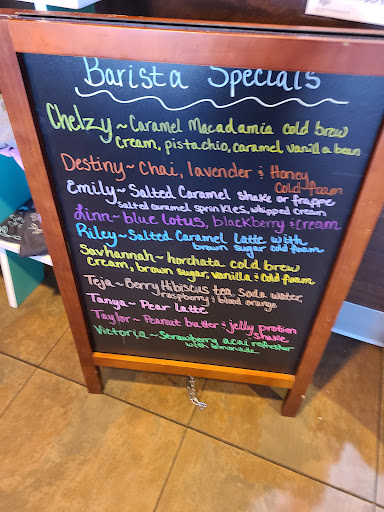 Barista Specials
Chelzy ~ Caramel Macadamia cold brew
cream, pistachio, caramel, vanilla bean
Destiny ~ Chai, lavender & Honey
Cold foam
Emily ~ Salted Caramel shake or frappe
salted caramel sprinkles, whipped cream
Linn ~ blue lotus, blackberry & cream
Riley ~ Salted Caramel Latte with
brown sugar cold foam
Savhannah ~ horchata cold brew
cream, brown sugar, vanilla & cold foam
Teja ~ Berry Hibiscus tea, Soda water,
raspberry & blood orange
Tanya ~ Pear latte
Taylor ~ Peanut butter & jelly protien
shake
Victoria ~ Strawberry acai refresher
with lemonade